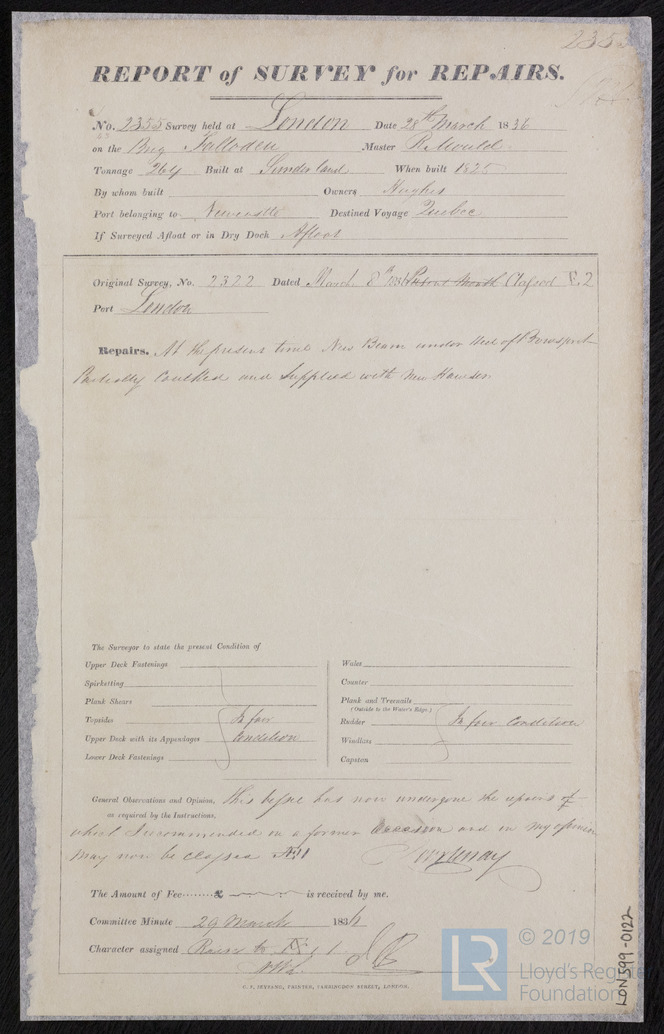 2355
REPORT of SURVEY for REPAIRS.
No. 2355 Survey held at London Date 28th March 1836
on the Brig Falloden Master R. Mould
Tonnage 264 Built at Sunderland When built 1825
By whom built Owners Hughes
Port belonging to Newcastle Destined Voyage Quebec
If Surveyed Afloat or in Dry Dock Afloat
Original Survey, No. 2322 Dated March 8th Present Month Classed E. 2
Port London
Repairs. At the present time New Beam under Heel of Bowsprit
Partially Caulked and Supplied with New Hawser
The Surveyor to state the present Condition of
Upper Deck Fastenings
Spirketting
Plank Shears
Topsides In fair
Upper Deck with its Appendages Condition
Lower Deck Fastenings
Wales
Counter
Plank and Treenails
(Outside to the Water's Edge.)
Rudder In fair Condition
Windlass
Capstan
General Observations and Opinion, This has now undergone the repairs
as required by the Instructions,
which I recommended in a former Occasion and in my opinion
may now be classed Æ1
The Amount of Fee........£ is received by me.
Committee Minute 29 March 1836
Character assigned Raise to Æ 1
C. F. SEYFANG, PRINTER, FARRINGDON STREET, LONDON.
LON 599-0122
LR © 2019
Lloyd's Register
Foundation